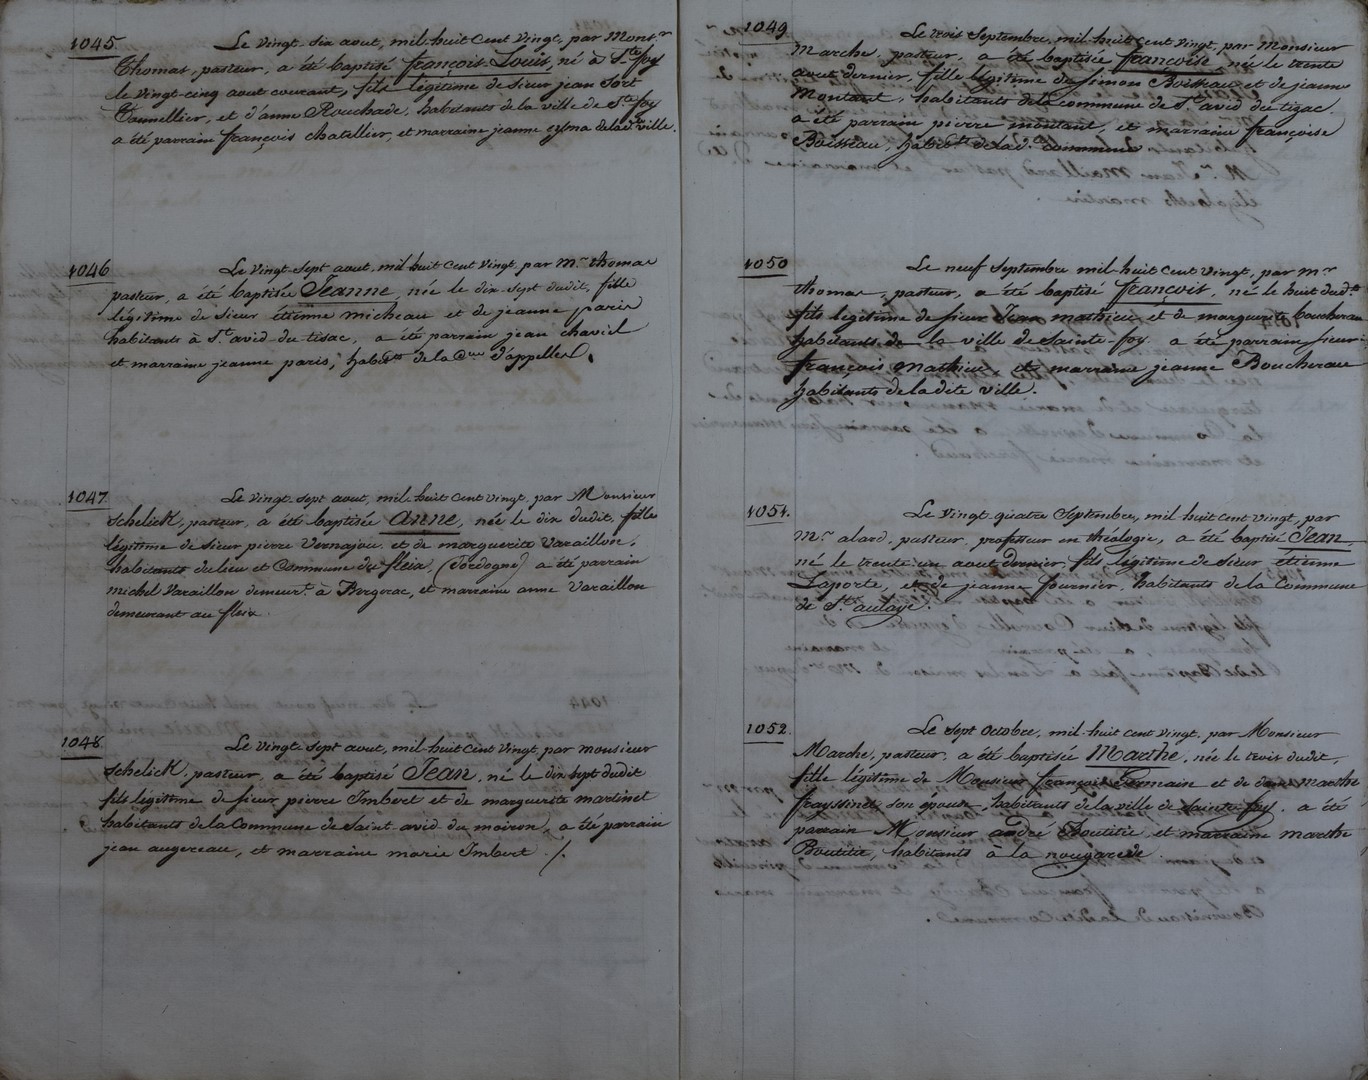 1045. Le vingt-six aout, mil-huit Cent Vingt, par Monsr
Thomas, pasteur, a été baptisé françois-Louis, né à Ste foy
le vingt-cinq aout courant, fils légitime de sieur jean Sort
Tonnellier, et d'anne Rouchade, habitants de la ville de Ste foy
a été parrain françois chatellier, et marraine jeanne de lad.e ville.
1046 Le Vingt-Sept aout, mil-huit Cent Vingt, par mr thomas
pasteur, a été baptisée Jeanne, née le dix-sept dudit, fille
légitime de sieur étienne micheau et de jeanne paris
habitants à St. avid-du-tisac, a été parrain jean chavil
et marraine jeanne paris, habits de la d'appelles.
1047. Le vingt-Sept aout, mil-huit Cent vingt, par Monsieur
Schelick, pasteur, a été baptisée anne, née le dix dudit, fille
légitime de sieur pierre Vernajou, et de marguerite Varaillon,
habitants du lieu et Commune du fleix, (Dordogne) a été parrain
michel Varaillon demeurt. à Bergerac, et marraine anne Varaillon
demeurant au fleix.
1048. Le Vingt-Sept aout, mil-huit Cent Vingt, par monsieur
Schelick, pasteur, a été baptisé Jean, né le dix sept dudit
fils légitime de sieur pierre Imbert et de marguerite martinet
habitants de la Commune de Saint-avid-du-moiron, a été parrain
jean augereau, et marraine marie Imbert ./.
1049 Le trois Septembre, mil-huit cent vingt, par Monsieur
Marche, pasteur, a été baptisée françoise, née le trente
aout dernier, fille légitime de simon Boisseau et de jeanne
Montant, habitants de la commune de St. avid du tizac.
a été parrain pierre montant, et marraine françoise
Boisseau, habitts de la d.e commune
1050 Le neuf Septembre mil-huit cent vingt, par mr
thomas, pasteur, a été baptisé françois, né le huit dudt
fils légitime de sieur jean mathieu et de marguerite boucherau
habitants de la ville de Sainte-foy a été parrain sieur
françois Mathieu, et marraine jeanne Boucherau
habitants de la dite ville.
1051. Le Vingt-quatre Septembre, mil huit cent vingt, par
Mr alard, pasteur, professeur en théologie, a été baptisé Jean
né le trente-un aout dernier, fils légitime de sieur étienne
Laporte, et de jeanne fournier, habitants de la Commune
de St. aulaye.
1052. Le Sept octobre, mil-huit cent vingt, par Monsieur
Marche, pasteur, a été baptisée Marthe, née le trois dudit,
fille légitime de Monsieur françois Romain et de dame marthe
frayssinet, son épouse, habitants de la ville de Sainte-foy. a été
parrain Monsieur andré Boutitie, et marraine marthe
Boutitie, habitants à la nougarede.